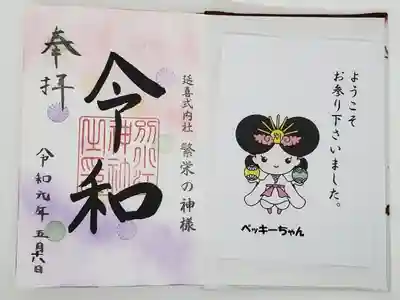 奉拝
令和
延喜式内社 繁栄の神様
別小江
神社
之璽
令和元年五月六日
ようこそ
お参り下さいました。
ベッキーちゃん